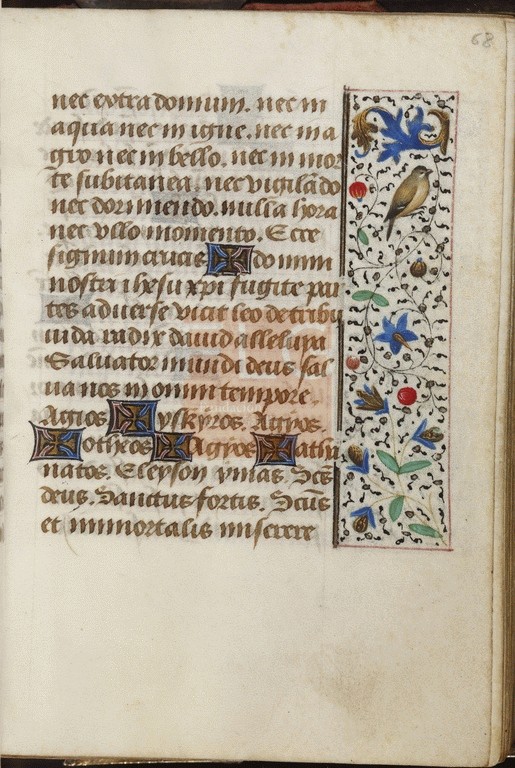 68
nec extra domum. nec in
aqua nec in igne. nec in a
gro nec in bello. nec in mor
te subitanea. nec vigilādo
nec dormiendo. nulla hora
nec vllo momento. Ecce
signum crucis ✠ domini
nostri ihesu xpi fugite par
tes aduerse vicit leo de tribu
iuda radix dauid alleluya
Saluator mundi deus sal
ua nos in omni tempore.
Agios ✠ yskyros. Agyos.
✠ otheos ✠ Agyos ✠ atha
natos. Eleyson ymas. Scs̄
deus. Sanctus fortis. Scūs
et immortalis miserere